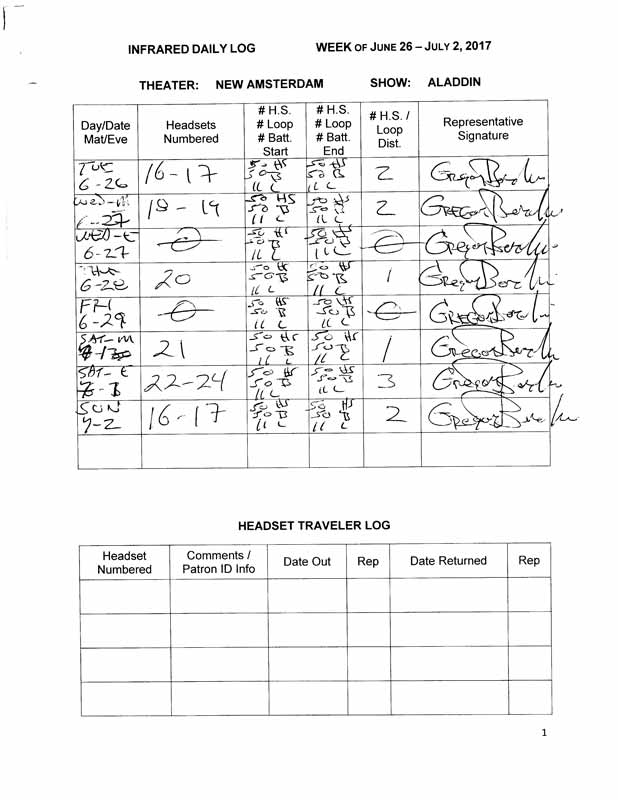 INFRARED DAILY LOG WEEK OF JUNE 26 – JULY 2, 2017
THEATER: NEW AMSTERDAM SHOW: ALADDIN
Day/Date Mat/Eve | Headsets Numbered | # H.S. # Loop # Batt. Start | # H.S. # Loop # Batt. End | # H.S. / Loop Dist. | Representative Signature
TUE 6-26 | 16-17 | 50 HS 50 B 11 L | 50 HS 50 B 11 L | 2 | Gregor
Wed-M 6-27 | 18-19 | 50 HS 50 B 11 L | 50 HS 50 B 11 L | 2 | Gregor
WED-E 6-27 | 0 | 50 HS 50 B 11 L | 50 HS 50 B 11 L | 0 | Gregor
Thu 6-28 | 20 | 50 HS 50 B 11 L | 50 HS 50 B 11 L | 1 | Gregor
FRI 6-29 | 0 | 50 HS 50 B 11 L | 50 HS 50 B 11 L | 0 | Gregor
SAT-M | 21 | 50 HS 50 B 11 L | 50 HS 50 B 11 L | 1 | Gregor
SAT-E | 22-24 | 50 HS 50 B 11 L | 50 HS 50 B 11 L | 3 | Gregor
SUN 7-2 | 16-17 | 50 HS 50 B 11 L | 50 HS 50 B 11 L | 2 | Gregor
HEADSET TRAVELER LOG
Headset Numbered | Comments / Patron ID Info | Date Out | Rep | Date Returned | Rep
1